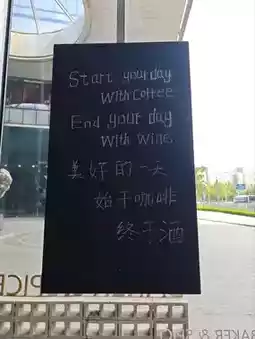 Start your day
With Coffee
End your day
With Wine
美好的一天
始于咖啡
终于酒
BAKER & SPICE